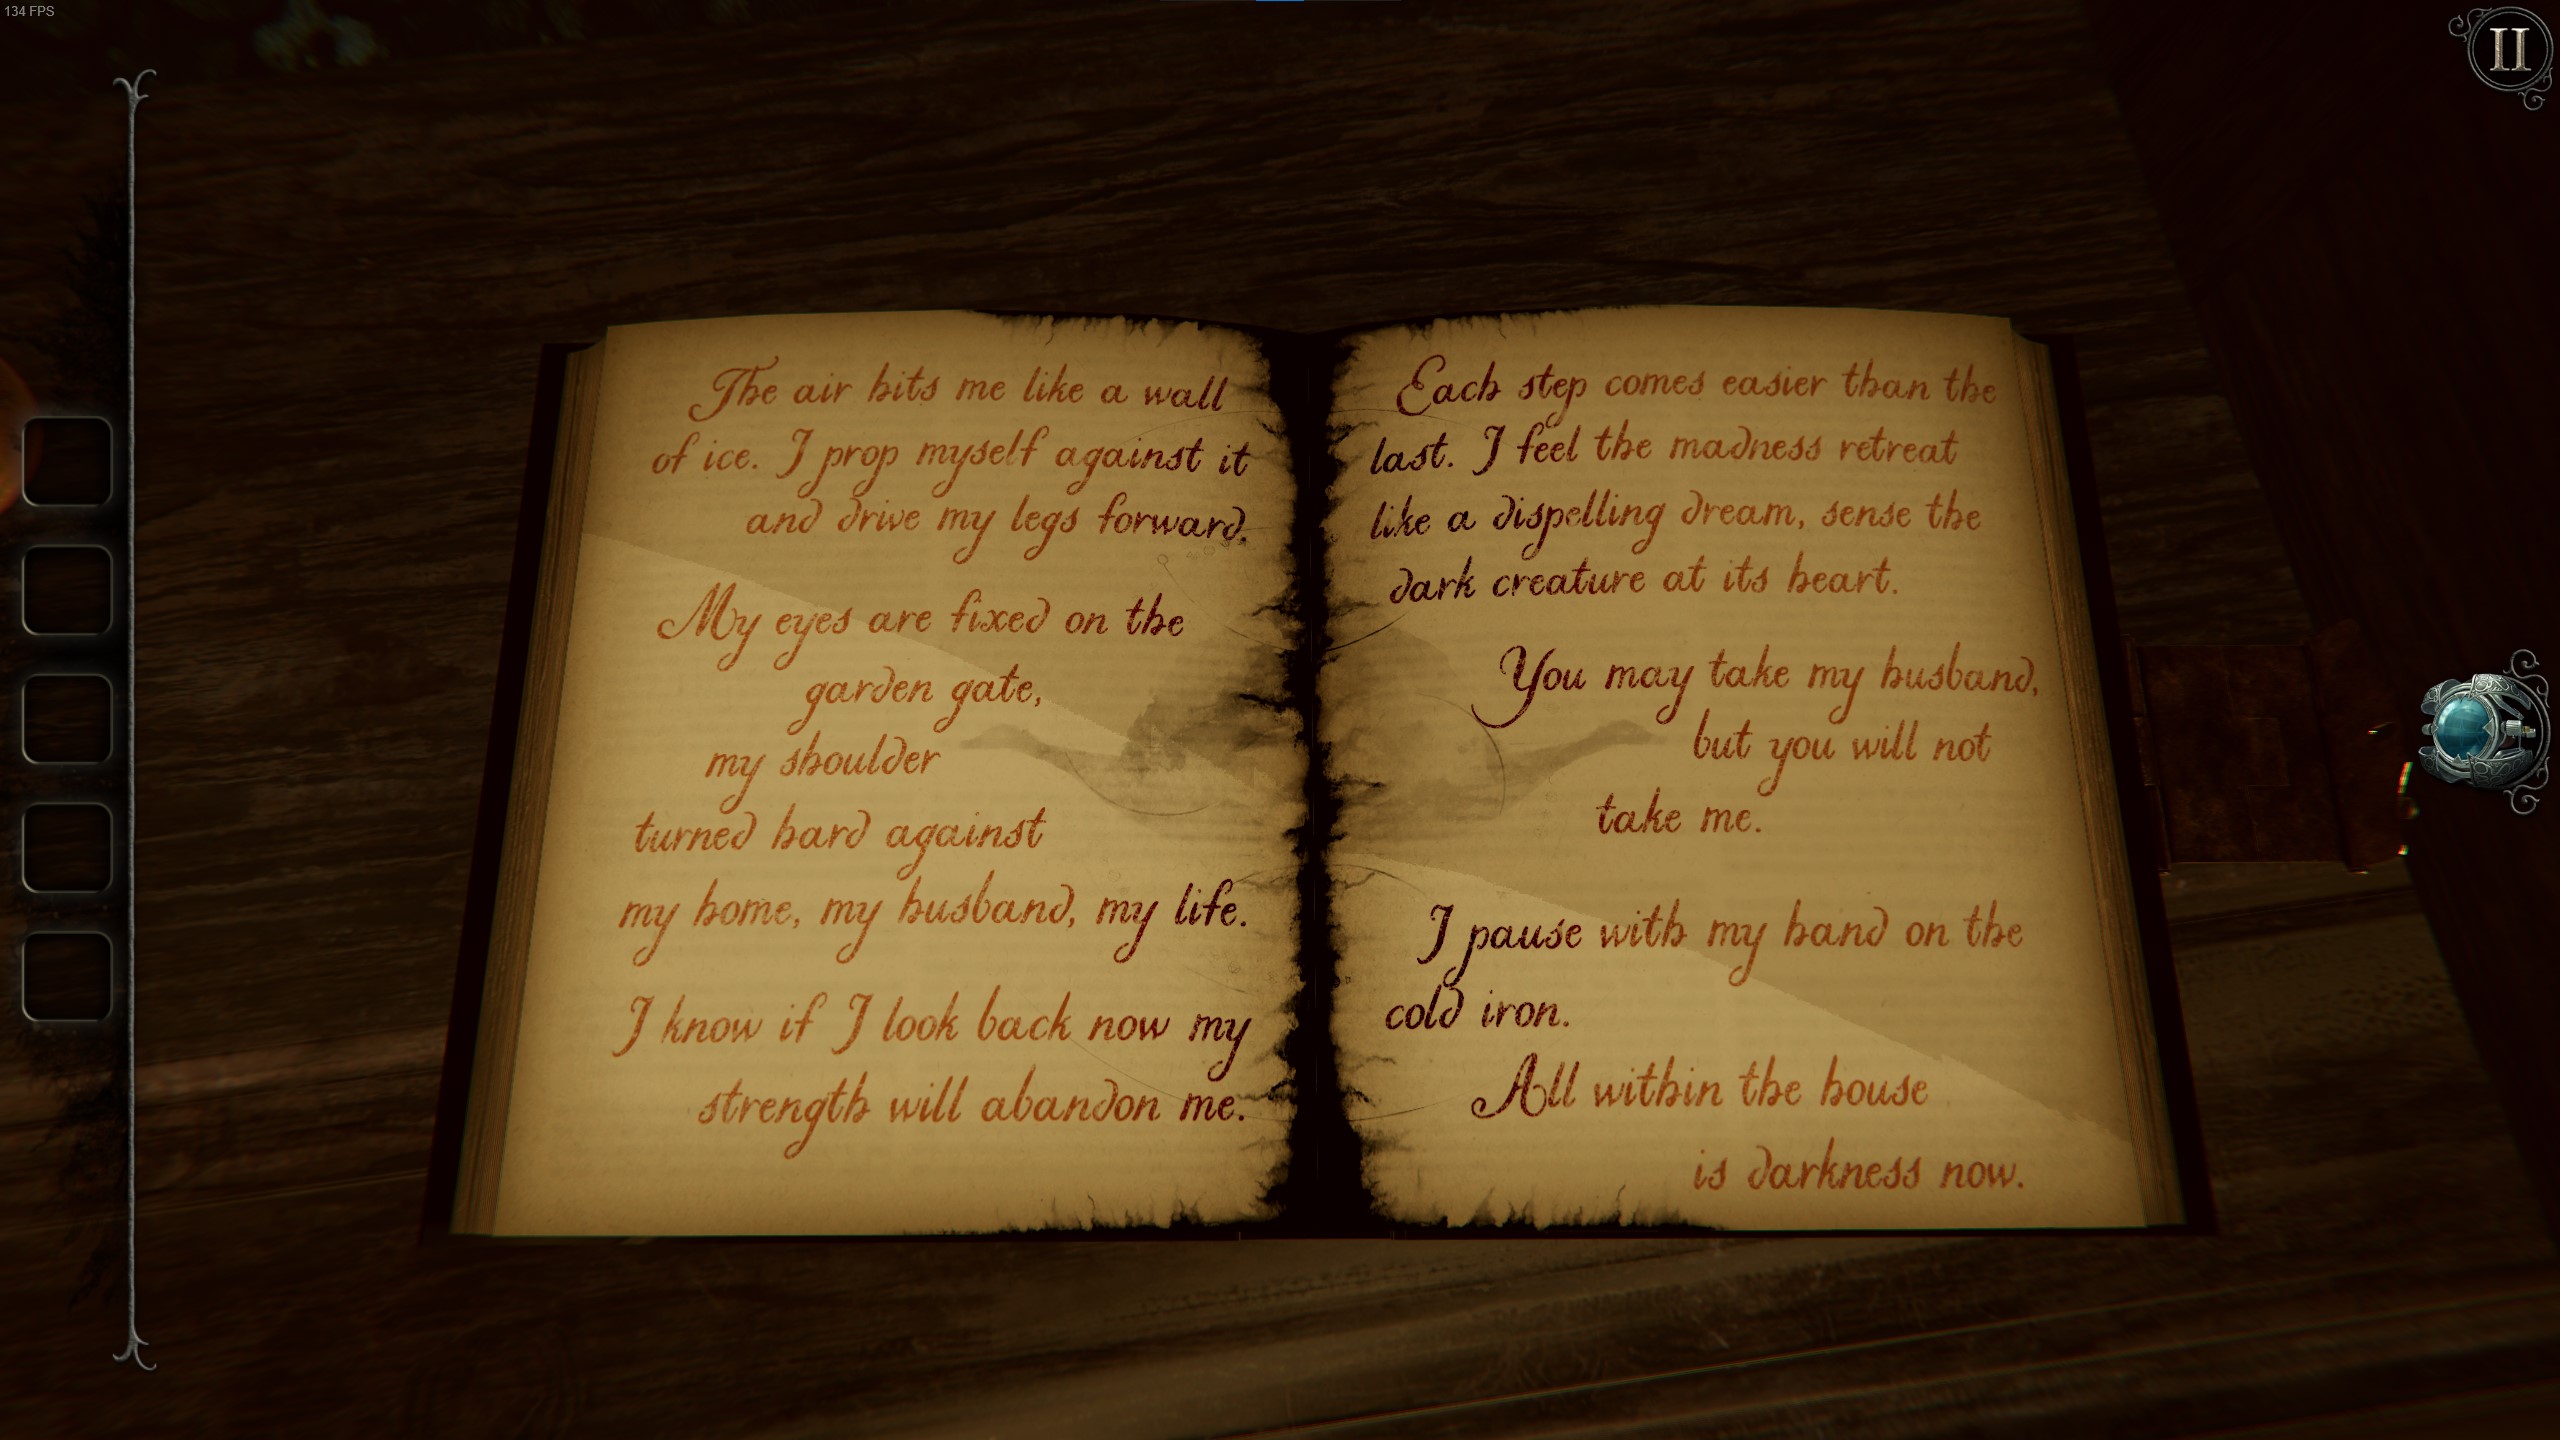 134 FPS
II
The air hits me like a wall
of ice. I prop myself against it
and drive my legs forward.
My eyes are fixed on the
garden gate,
my shoulder
turned hard against
my home, my husband, my life.
I know if I look back now my
strength will abandon me.
Each step comes easier than the
last. I feel the madness retreat
like a dispelling dream, sense the
dark creature at its heart.
You may take my husband,
but you will not
take me.
I pause with my hand on the
cold iron.
All within the house
is darkness now.